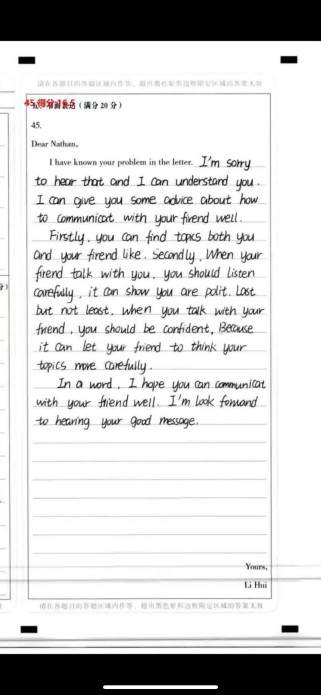 请在各题目的答题区域内作答，超出黑色矩形边框限定区域的答案无效
45.得分:16.5
(满分 20 分)
45.
Dear Nathan,
I have known your problem in the letter. I'm sorry
to hear that and I can understand you.
I can give you some advice about how
to communicat with your firend well.
Firstly, you can find topics both you
and your firend like. Secondly, When your
firend talk with you, you should listen
carefully, it can show you are polit. Last
but not least, when you talk with your
friend, you should be confident, Because
it can let your friend to think your
topics more carefully.
In a word, I hope you can communicat
with your friend well. I'm look forward
to hearing your good message.
Yours,
Li Hui
请在各题目的答题区域内作答，超出黑色矩形边框限定区域的答案无效